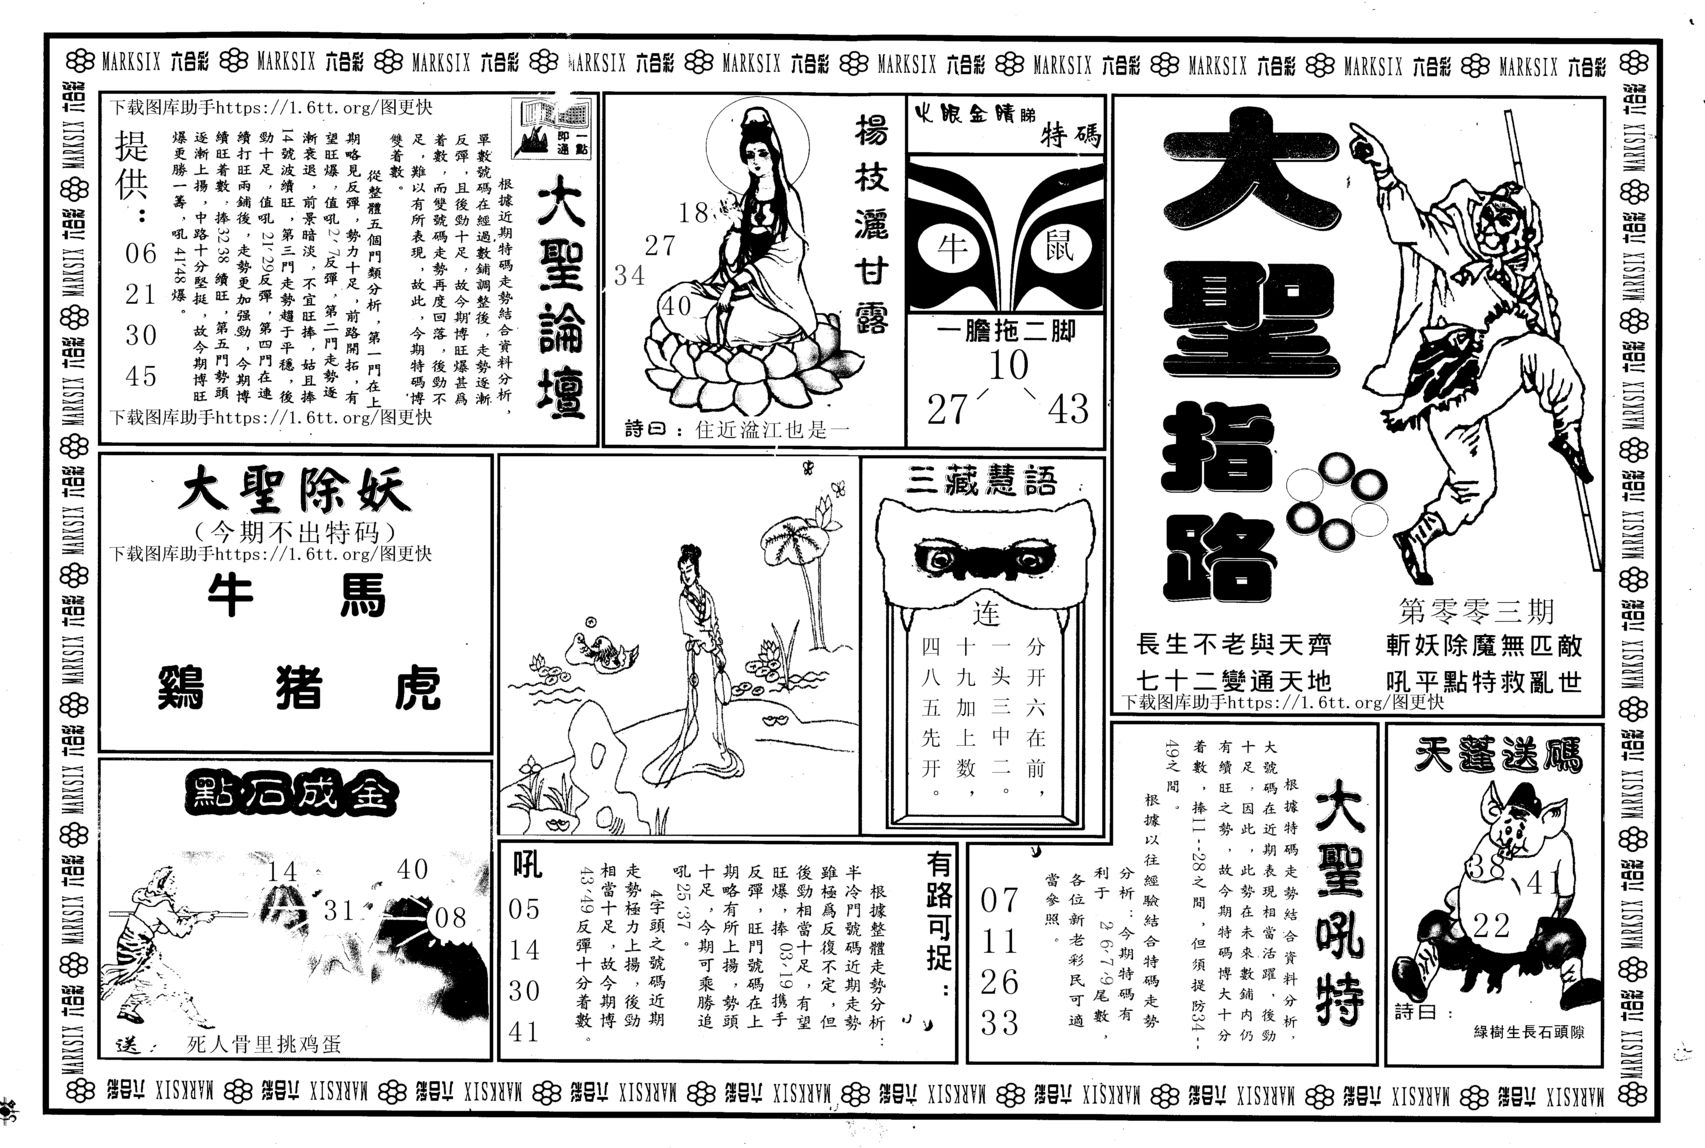 MARKSIX 六合彩 MARKSIX 六合彩 MARKSIX 六合彩 MARKSIX 六合彩 MARKSIX 六合彩 MARKSIX 六合彩 MARKSIX 六合彩 MARKSIX 六合彩 MARKSIX 六合彩 MARKSIX 六合彩
大聖指路
第零零三期
斬妖除魔無匹敵
吼平點特救亂世
長生不老與天齊
七十二變通天地
下载图库助手https://1.6tt.org/图更快
火眼金睛睇
特碼
牛
鼠
一膽拖二脚
10
27
43
楊枝灑甘露
18
27
34
40
詩曰：住近湓江也是一
一點即通
大聖論壇
下载图库助手https://1.6tt.org/图更快
根據近期特碼走勢結合資料分析，
單數號碼在經過數鋪調整後，走勢逐漸
反彈，且後勁十足，故今期博旺爆甚爲
着數，而雙號碼走勢再度回落，後勁不
足，難以有所表現，故此，今期特碼博
雙着數。
從整體五個門類分析，第一門在上
期略見反彈，勢力十足，前路開拓，有
望旺爆，值吼2、7反彈，第二門走勢逐
漸衰退，前景暗淡，不宜旺捧，姑且捧
14號波續旺，第三門走勢趨于平穩，後
勁十足，值吼21、29反彈，第四門在連
續打旺兩鋪後，走勢更加强勁，今期博
續旺着數，捧32 38 續旺，第五門勢頭
逐漸上揚，中路十分堅挺，故今期博旺
爆更勝一籌，吼41、48爆。
提供：
06
21
30
45
下载图库助手https://1.6tt.org/图更快
大聖除妖
（今期不出特码）
下载图库助手https://1.6tt.org/图更快
牛 馬
鷄 猪 虎
三藏慧語
连
分开六在前，
一头三中二。
十九加上数，
四八五先开。
點石成金
14
40
31
08
送： 死人骨里挑鸡蛋
有路可捉：
根據整體走勢分析：
半冷門號碼近期走勢
雖極爲反復不定，但
後勁相當十足，有望
旺爆，捧03、19携手
反彈，旺門號碼在上
期略有所上揚，勢頭
十足，今期可乘勝追
吼25、37。
4字頭之號碼近期
走勢極力上揚，後勁
相當十足，故今期博
43、49反彈十分着數。
吼
05
14
30
41
大聖吼特
根據特碼走勢結合資料分析，
大號碼在近期表現相當活躍，後勁
十足，因此，此勢在未來數鋪内仍
有續旺之勢，故今期特碼博大十分
着數，捧11--28之間，但須提防34--
49之間。
根據以往經驗結合特碼走勢
分析：今期特碼有
利于 2 6 7 9尾數，
各位新老彩民可適
當參照。
07
11
26
33
天蓬送碼
38
41
22
詩曰：
綠樹生長石頭隙
MARKSIX 六合彩 MARKSIX 六合彩 MARKSIX 六合彩 MARKSIX 六合彩 MARKSIX 六合彩 MARKSIX 六合彩 MARKSIX 六合彩 MARKSIX 六合彩 MARKSIX 六合彩 MARKSIX 六合彩